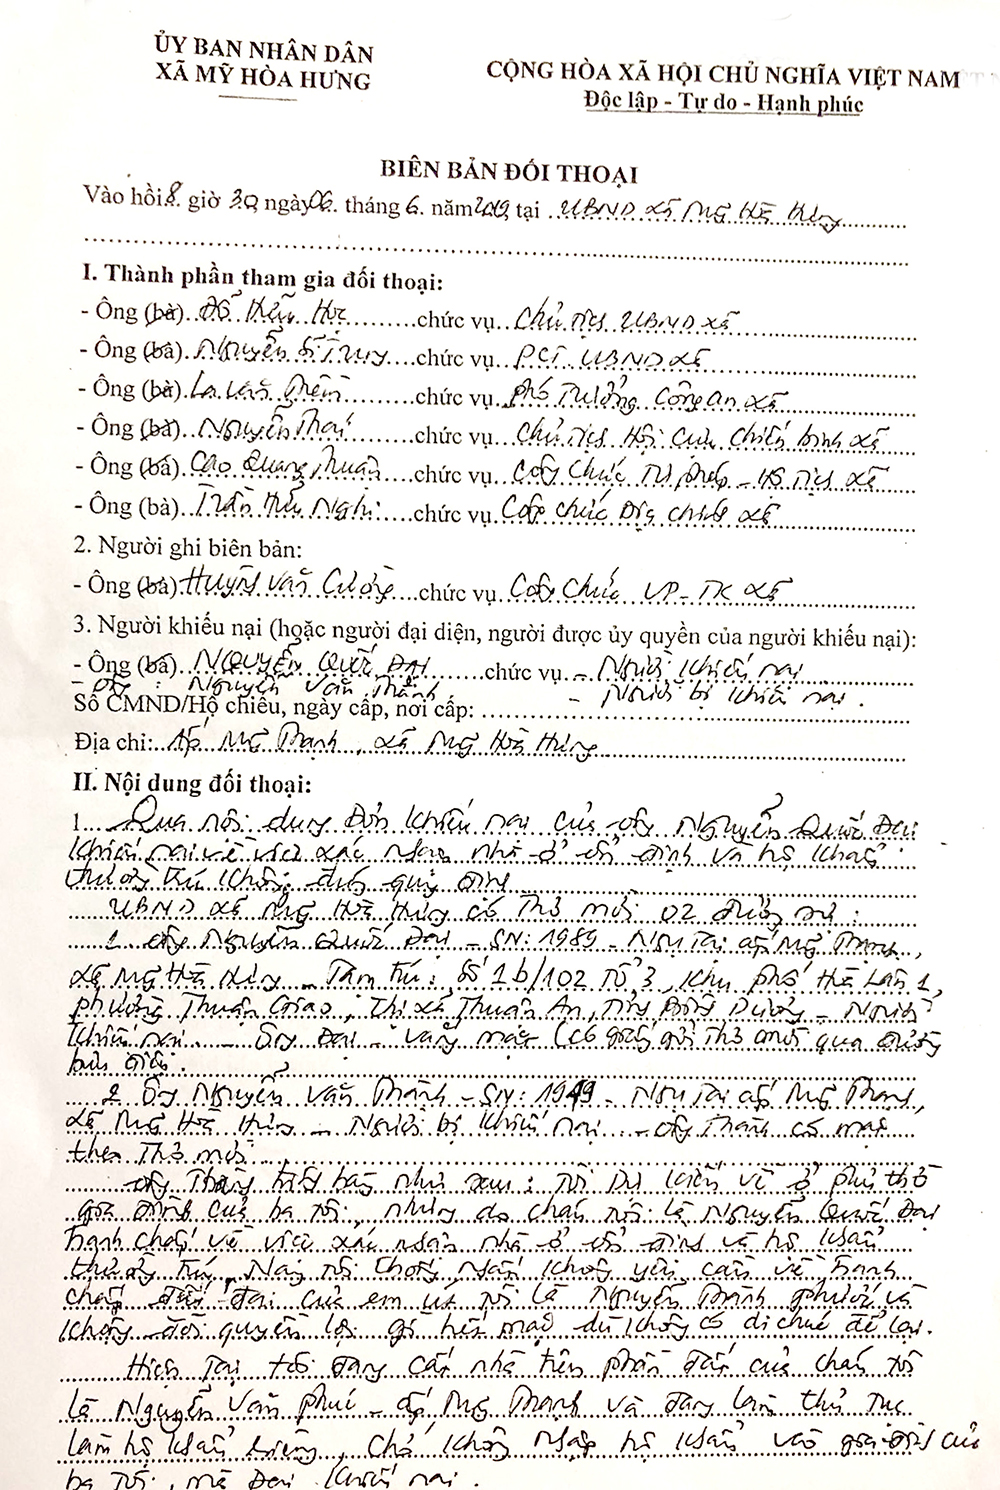 ỦY BAN NHÂN DÂN
XÃ MỸ HÒA HƯNG
CỘNG HÒA XÃ HỘI CHỦ NGHĨA VIỆT NAM
Độc lập - Tự do - Hạnh phúc
BIÊN BẢN ĐỐI THOẠI
Vào hồi 8 giờ 30 ngày 06 tháng 6 năm 2019 tại UBND xã Mỹ Hòa Hưng
I. Thành phần tham gia đối thoại:
- Ông (bà) Đỗ Hữu chức vụ Chủ tịch UBND xã
- Ông (bà) Nguyễn Sĩ Truy chức vụ PCT UBND xã
- Ông (bà) La Văn chức vụ Phó Trưởng Công an xã
- Ông (bà) Nguyễn Thái chức vụ Chủ tịch Hội Cựu chiến binh xã
- Ông (bà) Cao Quang Thuận chức vụ Công chức Tư pháp - Hộ tịch xã
- Ông (bà) Trần Hữu Nghi chức vụ Công chức Địa chính xã
2. Người ghi biên bản:
- Ông (bà) Huỳnh Văn Cường chức vụ Công chức VP - TK xã
3. Người khiếu nại (hoặc người đại diện, người được ủy quyền của người khiếu nại):
- Ông (bà) Nguyễn Quốc Đại chức vụ - Người khiếu nại
- Ông : Nguyễn Văn Thành - Người bị khiếu nại.
Số CMND/Hộ chiếu, ngày cấp, nơi cấp:
Địa chỉ: Ấp Mỹ Thạnh, xã Mỹ Hòa Hưng
II. Nội dung đối thoại:
1. Qua nội dung Đơn khiếu nại của ông Nguyễn Quốc Đại
khiếu nại về việc xác nhận nhà ở ổn định và hộ khẩu
thường trú không đúng quy định
UBND xã Mỹ Hòa Hưng có Thư mời 02 đương sự:
1. Ông Nguyễn Quốc Đại - SN: 1989 - Ngụ tại ấp Mỹ Thạnh,
xã Mỹ Hòa Hưng - Tạm trú: Số 1b/102 Tổ 3, khu phố Hòa Lân 1,
phường Thuận Giao, Thị xã Thuận An, Tỉnh Bình Dương - Người
khiếu nại - Ông Đại - vắng mặt (có giấy gửi Thư mời qua đường
bưu điện.
2. Ông Nguyễn Văn Thành - SN: 1949 - Ngụ tại ấp Mỹ Thạnh,
xã Mỹ Hòa Hưng - Người bị khiếu nại - ông Thành có mặt
theo Thư mời
Ông Thành trình bày như sau: Tôi dự kiến về ở phủ thờ
gia đình của ba tôi, nhưng do cháu tôi là Nguyễn Quốc Đại
tranh chấp về việc xác nhận nhà ở ổn định và hộ khẩu
thường trú. Nay tôi thống nhất không yêu cầu về tranh
chấp đất đai của em út tôi là Nguyễn Thành Phước và
không đòi quyền lợi gì hết mặc dù không có di chúc để lại.
Hiện tại tôi đang cất nhà trên phần đất của cháu tôi
là Nguyễn Văn Phúc - ấp Mỹ Thạnh và đang làm thủ tục
làm hộ khẩu riêng, chớ không nhập hộ khẩu vào gia đình của
ba tôi, mà Đại khiếu nại.